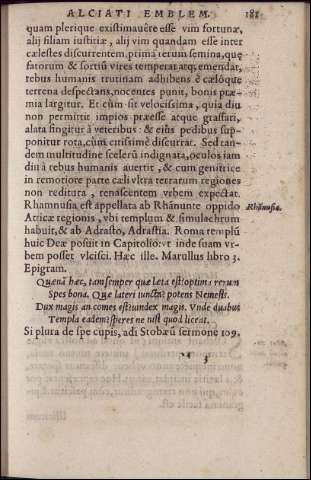 ALCIATI EMBLEM. 181
quam plerique existimauêre esse vim fortunæ,
alij filiam iustitiæ, alij vim quandam esse inter
cælestes discurrentem, prima rerum semina, quę
fatorum & sortiũ vires temperat atq; emendat,
rebus humanis trutinam adhibens è cælóque
terrena despectans, nocentes punit, bonis præ-
mia largitur. Et cùm sit velocissima, quia diu
non permittit impios præesse atque grassari,
alata fingitur à veteribus: & eius pedibus sup-
ponitur rota, cùm citissimè discurrat. Sed tan-
dem multitudine scelerũ indignata, oculos iam
diu à rebus humanis auertit, & cum genitrice
in remotiore parte cæli vltra terrarum regiones
non reditura, renascentem vrbem expectat.
Rhamnusia, est appellata ab Rhãnunte oppido
Atticæ regionis, vbi templum & simulachrum
Rhãnusia.
habuit, & ab Adrasto, Adrastia. Romæ templũ
huic Deæ posuit in Capitolio: vt inde suam vr-
bem posset vlcisci. Hæc ille. Marullus libro 3.
Epigram.
Quænã hæc, tam semper quæ læta est: optima rerum
Spes bona. Quæ lateri iuncta? potens Nemesis.
Dux magis an comes est: iundex magis. Vnde duabus
Templa eadem? speres ne nisi quod liceat.
Si plura de spe cupis, adi Stobæũ sermone 109.
3